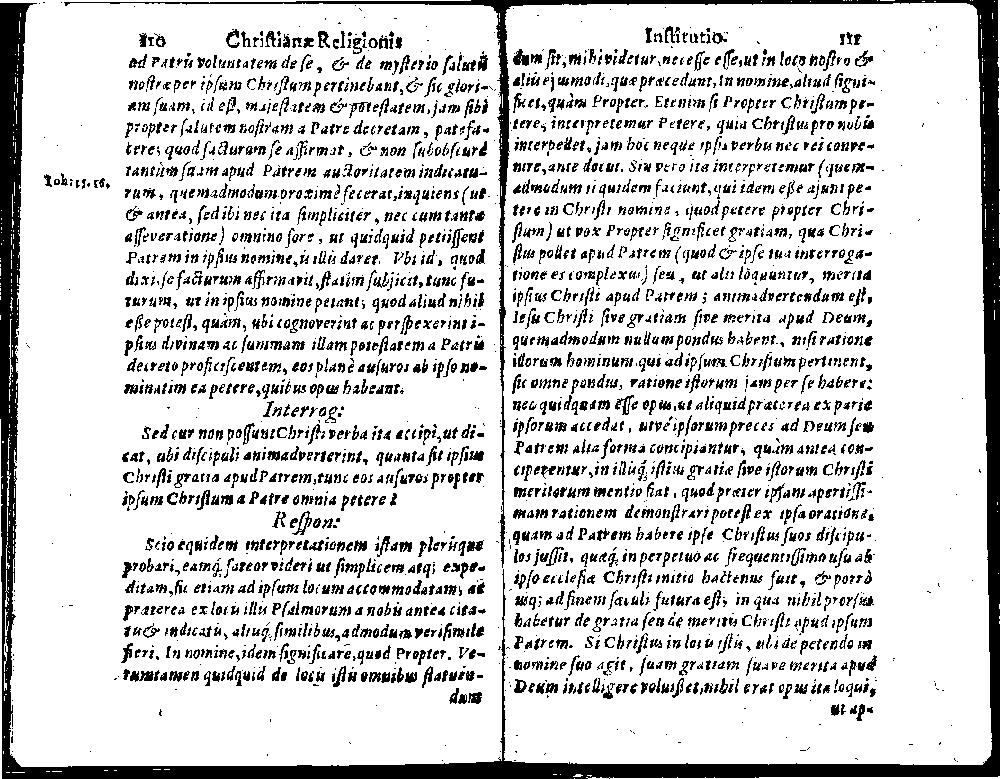 110 Christianæ Religionis
ad Patris voluntatem de se, & de mysterio salutis
nostræ per ipsum Christum pertinebant, & sic glori-
am suam, id est, majestatem & potestatem, jam sibi
propter salutem nostram a Patre decretam, patefa-
cere; quod facturum se affirmat, & non subobscure
tantùm suam apud Patrem auctoritatem indicatu-
Ioh: 15. 16.
rum, quemadmodum proximè fecerat, inquiens (ut
& antea, sed ibi nec ita simpliciter, nec cum tanta
asseveratione) omnino fore, ut quidquid petiissent
Patrem in ipsius nomine, is illis daret. Vbi id, quod
dixi, se facturum affirmavit, statim subjicit, tunc fu-
turum, ut in ipsius nomine petant; quod aliud nihil
esse potest, quàm, ubi cognoverint ac perspexerint i-
psius divinam ac summam illam potestatem a Patris
decreto proficiscentem, eos planè ausuros ab ipso no-
minatim ea petere, quibus opus habeant.
Interrog:
Sed cur non possunt Christi verba ita accipi, ut di-
cat, ubi discipuli animadverterint, quanta sit ipsius
Christi gratia apud Patrem, tunc eos ausuros propter
ipsum Christum a Patre omnia petere?
Respon:
Scio equidem interpretationem istam plerisque
probari, eamq́, fateor videri ut simplicem atq; expe-
ditam, sic etiam ad ipsum locum accommodatam; ac
præterea ex locis illis Psalmorum a nobis antea cita-
tis & indicatis, aliisq́ similibus, admodum verisimile
fieri, In nomine, idem significare, quod Propter. Ve-
rumtamen quidquid de locis istis omnibus statuen-
dum
Institutio. 111
dum sit, mihi videtur, necesse esse, ut in loco nostro &
aliis ejusmodi, quæ præcedunt, In nomine, aliud signi-
ficet, quàm Propter. Etenim si Propter Christum pe-
tere, interpretemur Petere, quia Christus pro nobis
interpellet, jam hoc neque ipsis verbis nec rei conve-
nire, ante docui. Sin vero ita interpretemur (quem-
admodum ii quidem faciunt, qui idem esse ajunt pe-
tere in Christi nomine, quod petere propter Chri-
stum) ut vox Propter significet gratiam, qua Chri-
stus pollet apud Patrem (quod & ipse tua interroga-
tione es complexus) seu, ut alii loquuntur, merita
ipsius Christi apud Patrem; animadvertendum est,
Iesu Christi sive gratiam sive merita apud Deum,
quemadmodum nullum pondus habent, nisi ratione
illorum hominum qui ad ipsum Christum pertinent,
sic omne pondus, ratione istorum jam per se habere:
nec quidquam esse opus, ut aliquid præterea ex parte
ipsorum accedat, utve ipsorum preces ad Deum seu
Patrem alia forma concipiantur, quàm antea con-
ciperentur, in illisq́, istius gratiæ sive istorum Christi
meritorum mentio fiat, quod præter ipsam apertissi-
mam rationem demonstrari potest ex ipsa oratione,
quam ad Patrem habere ipse Christus suos discipu-
los jussit, quæq́, in perpetuo ac frequentissimo usu ab
ipso ecclesiæ Christi initio hactenus fuit, & porrò
usq; ad finem sæculi futura est; in qua nihil prorsus
habetur de gratia seu de meritis Christi apud ipsum
Patrem. Si Christus in locis istis, ubi de petendo in
nomine suo agit, suam gratiam suave merita apud
Deum intelligere voluisset, nihil erat opus ita loqui,
ut ap-